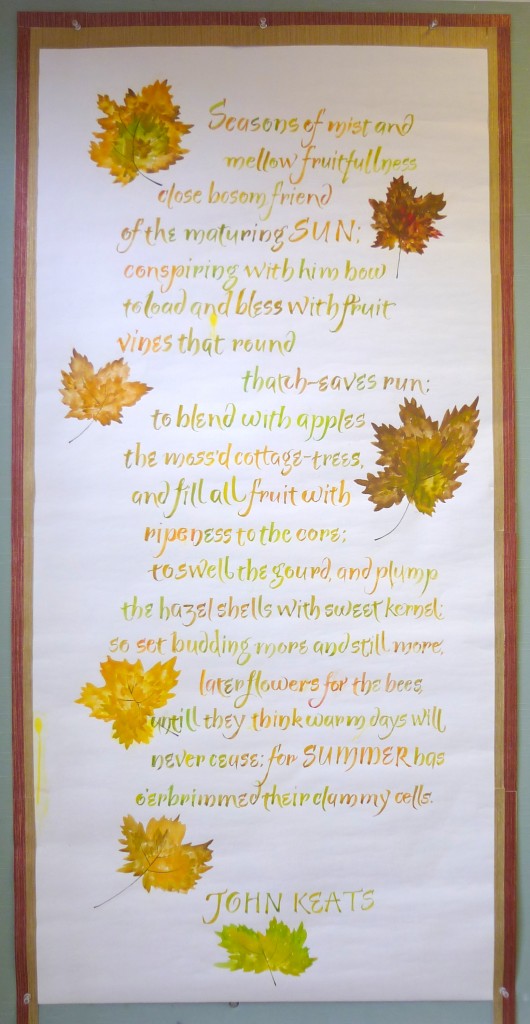 Seasons of mist and
mellow fruitfullness
close bosom friend
of the maturing SUN;
conspiring with him how
to load and bless with fruit
vines that round
thatch-eaves run;
to blend with apples
the moss'd cottage-trees,
and fill all fruit with
ripeness to the core;
to swell the gourd, and plump
the hazel shells with sweet kernel;
so set budding more and still more,
later flowers for the bees,
untill they think warm days will
never cease; for SUMMER has
o'erbrimmed their clammy cells.
JOHN KEATS